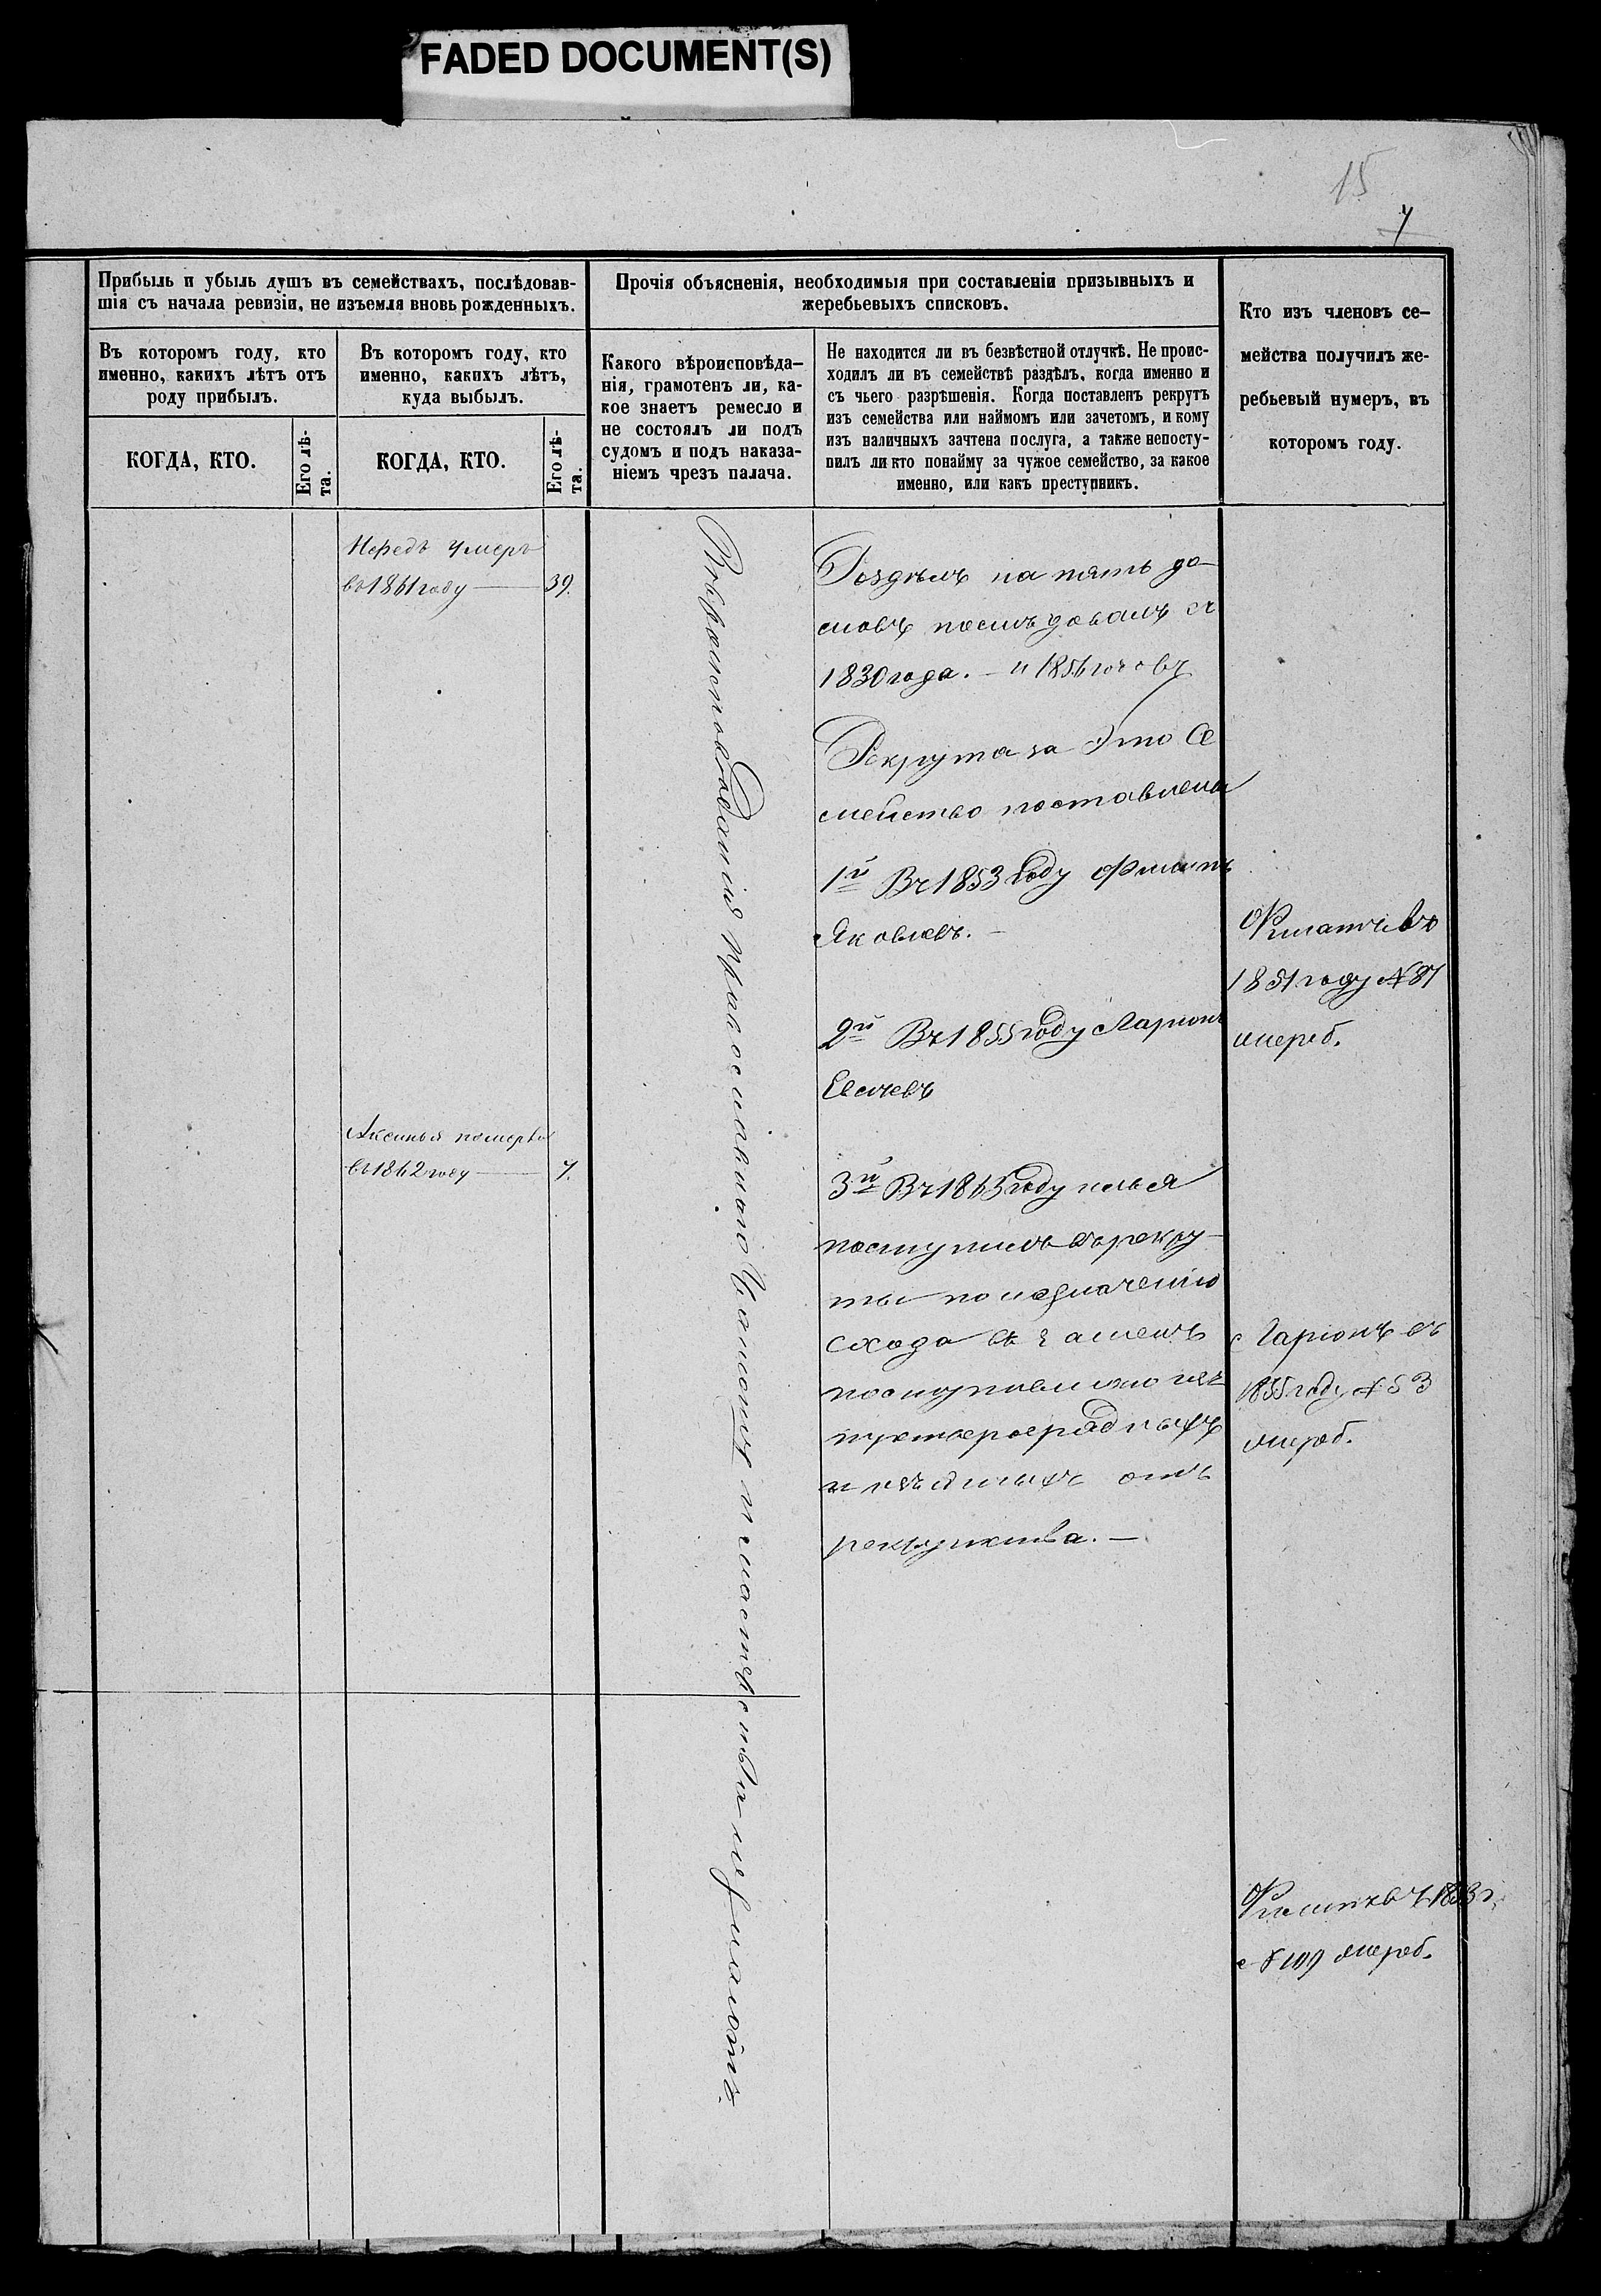 FADED DOCUMENT(S)
15
7
Прибыль и убыль душъ въ семействахъ, послѣдовав-
шія съ начала ревизіи, не изъемля вновь рожденныхъ.
Въ которомъ году, кто
именно, какихъ лѣтъ отъ
роду прибылъ.
КОГДА, КТО.
Его лѣ-
та.
Въ которомъ году, кто
именно, какихъ лѣтъ,
куда выбылъ.
КОГДА, КТО.
Его лѣ-
та.
Прочія объясненія, необходимыя при составленіи призывныхъ и
жеребьевыхъ списковъ.
Какого вѣроисповѣда-
нія, грамотенъ ли, ка-
кое знаетъ ремесло и
не состоялъ ли подъ
судомъ и подъ наказа-
ніемъ чрезъ палача.
Не находится ли въ безвѣстной отлучкѣ. Не проис-
ходилъ ли въ семействѣ раздѣлъ, когда именно и
съ чьего разрѣшенія. Когда поставленъ рекрутъ
изъ семейства или наймомъ или зачетомъ, и кому
изъ наличныхъ зачтена послуга, а также непосту-
пилъ ли кто понайму за чужое семейство, за какое
именно, или какъ преступникъ.
Кто изъ членовъ се-
мейства получилъ же-
ребьевый нумеръ, въ
которомъ году.
умеръ
въ 1861 году — 39.
Аксинья померла
въ 1862 году — 7.
Вѣроисповѣданія православнаго
неграмотны.
Раздѣлъ на пять до-
мовъ послѣдовалъ съ
1830 года. — и 1856 годовъ
Рекрута за Это Се
мейство поставлены
1й Въ 1853 году Филипъ
Яковлевъ. —
2й Въ 1855 году Ларіонъ
Евсѣевъ
3й Въ 1863 году илья
поступилъ въ рекру-
ты по назначенію
схода въ замѣнъ
отъ
рекрутства. —
Филатъ въ
1851 году № 87
жереб.
Ларіонъ въ
1855 году № 53
жереб.
Филипъ въ 1853 г.
№ 109 жереб.